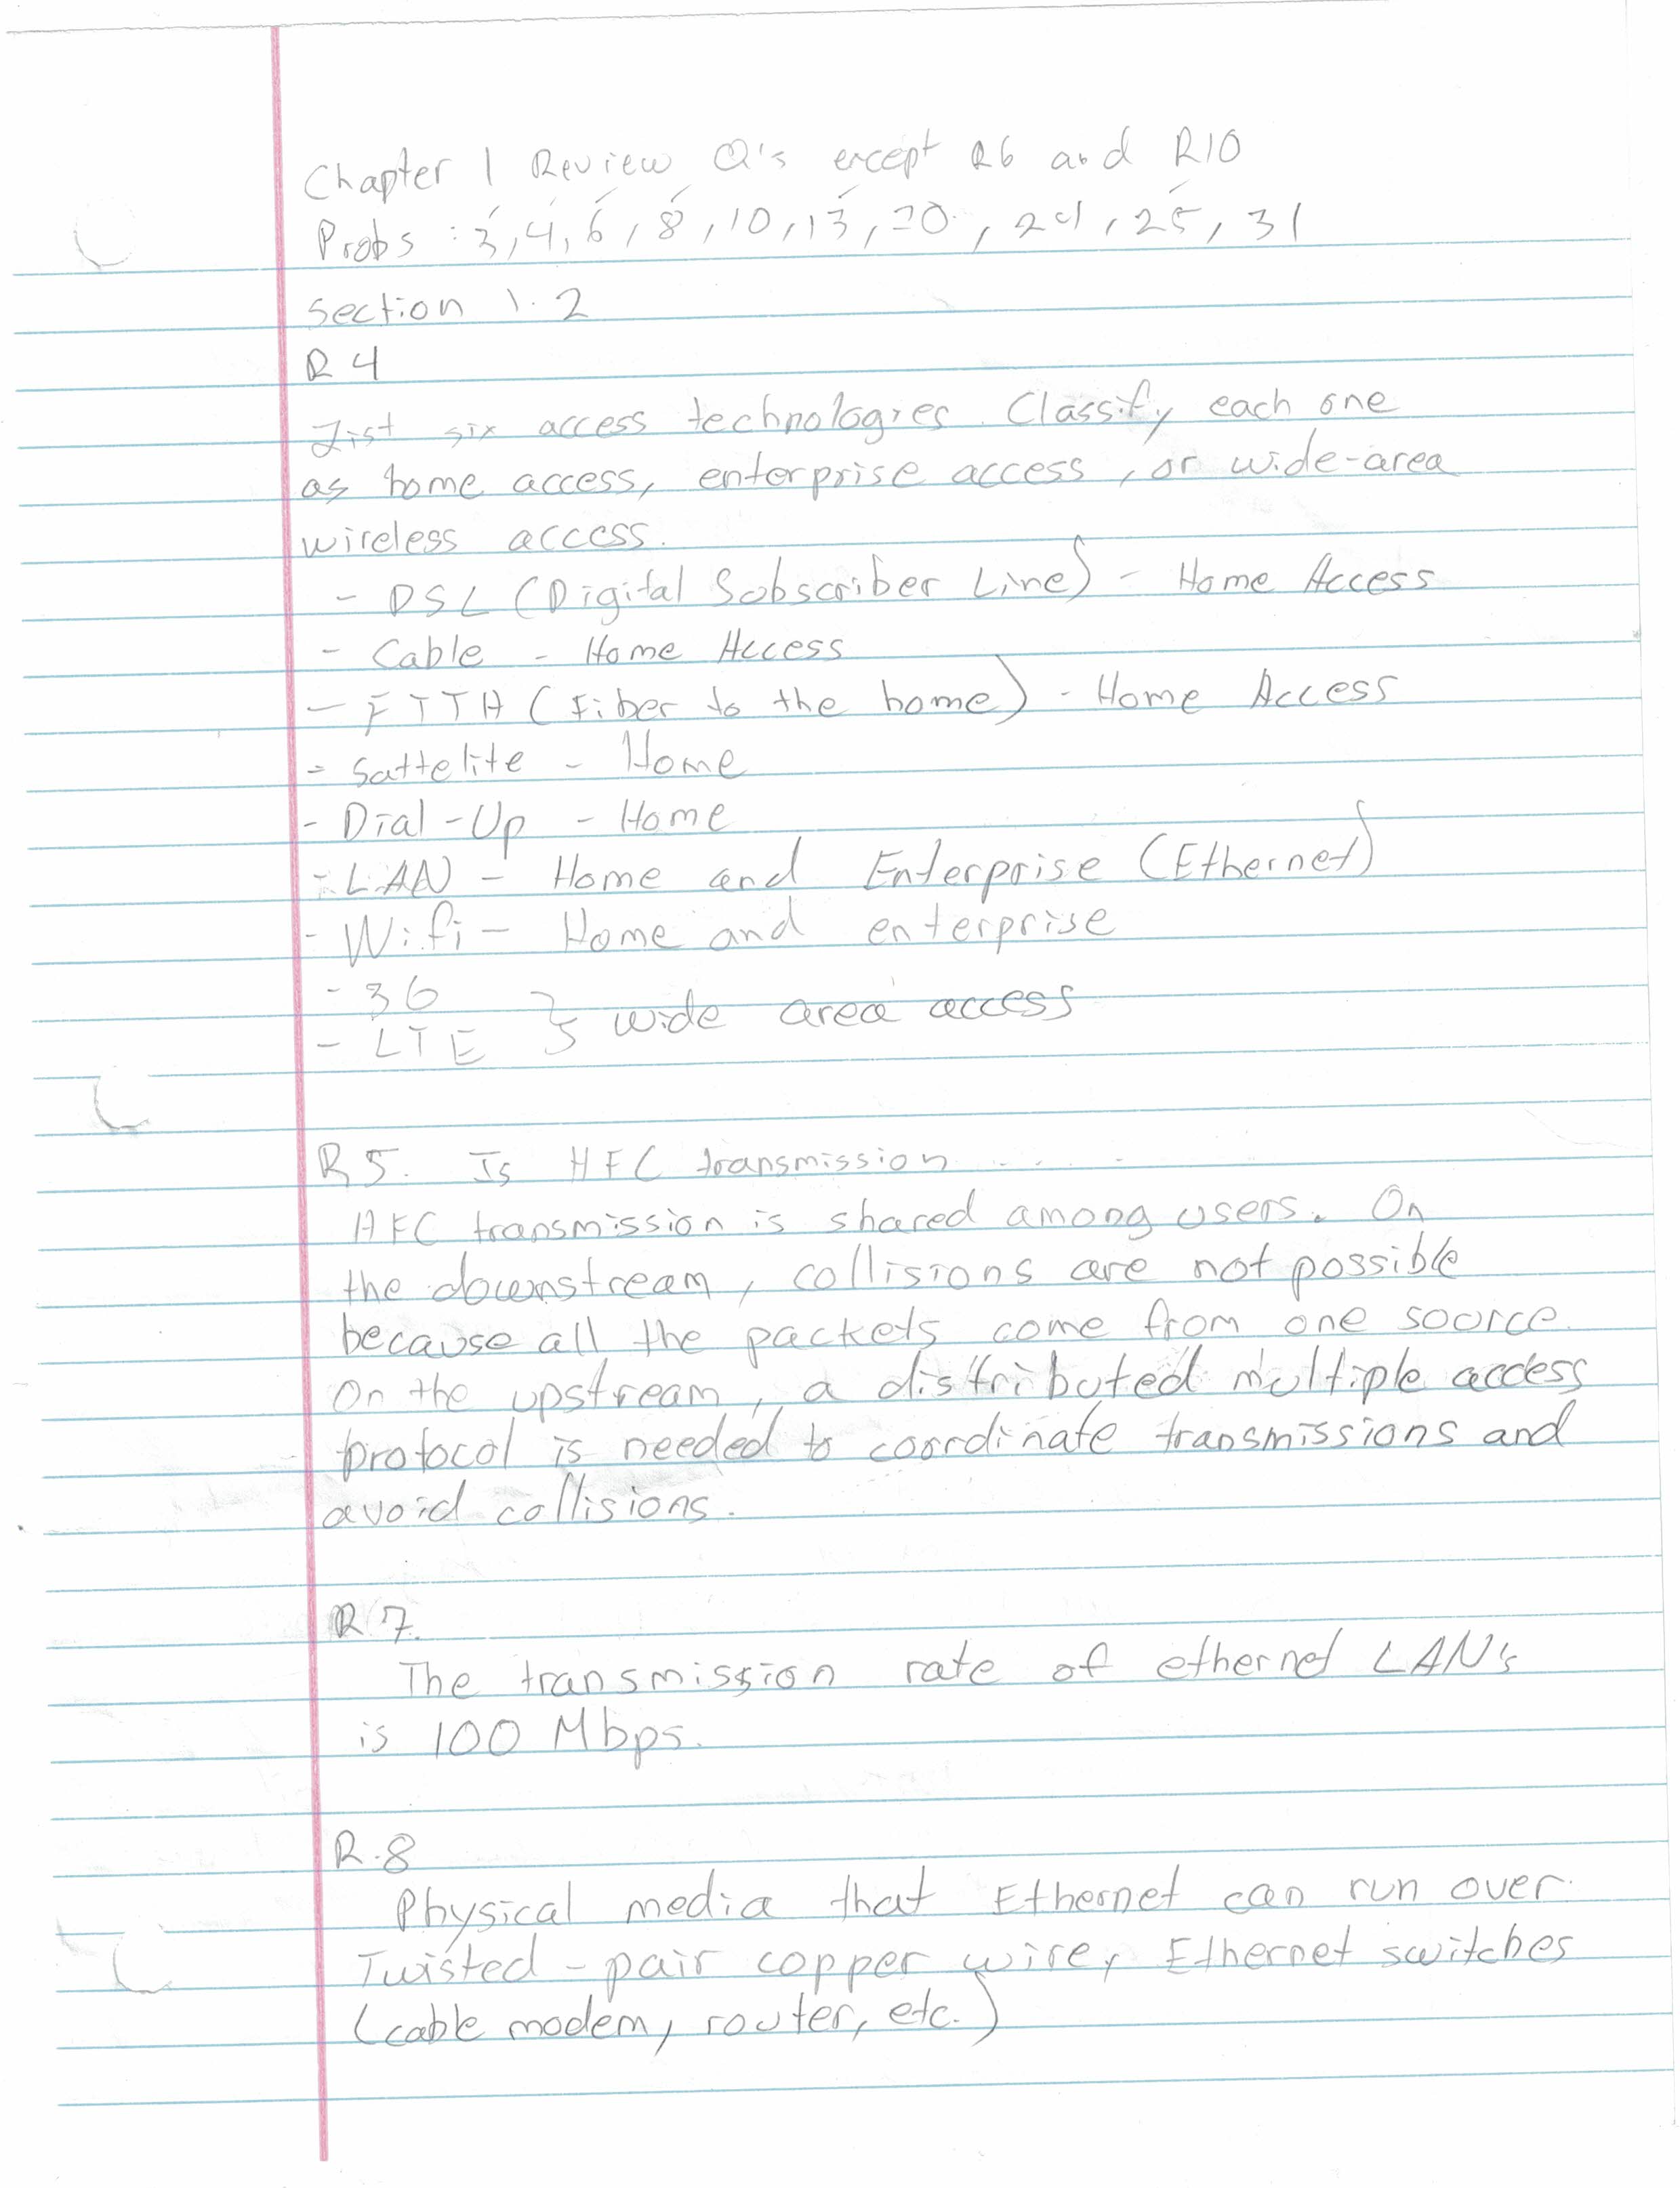 Chapter 1 Review Q's except R6 and R10
Probs : 3, 4, 6, 8, 10, 13, 20, 24, 25, 31
Section 1.2
R4
List six access technologies. Classify each one
as home access, enterprise access, or wide-area
wireless access.
- DSL (Digital Subscriber Line) - Home Access
- Cable - Home Access
- FTTH (Fiber to the home) - Home Access
- Sattelite - Home
- Dial-Up - Home
- LAN - Home and Enterprise (Ethernet)
- Wifi - Home and enterprise
- 3G } wide area access
- LTE
R5. Is HFC transmission ....
HFC transmission is shared among users. On
the downstream, collisions are not possible
because all the packets come from one source.
On the upstream, a distributed multiple access
protocol is needed to coordinate transmissions and
avoid collisions.
R7.
The transmission rate of ethernet LAN's
is 100 Mbps.
R.8
Physical media that Ethernet can run over.
Twisted-pair copper wire, Ethernet switches
(cable modem, router, etc.)